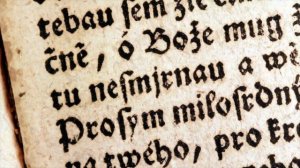 tebau sem zle
čně, ó Bože mug
tu nesmjrnau a wě
Prosym milosrdný
na twého, pro